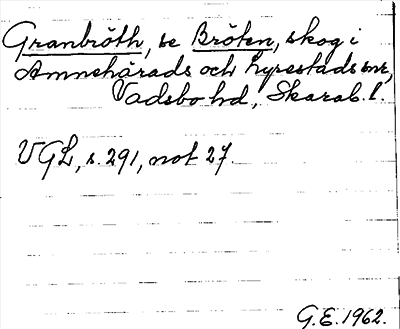 Granbröth, se Bröten, skog i
Amnehärads och Lyrestads snr,
Vadsbo hd, Skarab. l.
VGL, s. 291, not 27.
G.E. 1962.